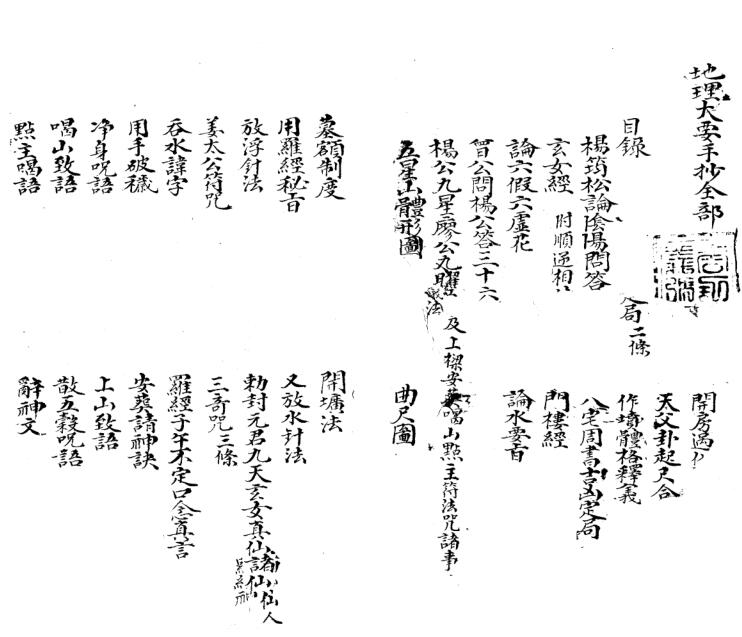 地理大要手抄全部
目錄
局二條
楊筠松論陰陽問答
玄女經 附順逆相
論六假六虛花
曾公問楊公答三十六
楊公九星廖公九曜 及上樑安葬喝山點主符法咒諸事
五星山體形圖
開房遇
天父卦起尺合
作體格釋義
八宅周書吉凶定局
門樓經
論水要旨
曲尺圖
墓額制度
用羅經秘旨
放浮針法
姜太公符咒
吞水諱字
用手破穢
净身咒語
喝山致語
點主喝語
開壙法
又放水針法
勅封元君九天玄女真仙諸仙仙人
三奇咒三條
羅經子午不定口念真言
安葬諸神訣
上山致語
散五穀咒語
辭神文